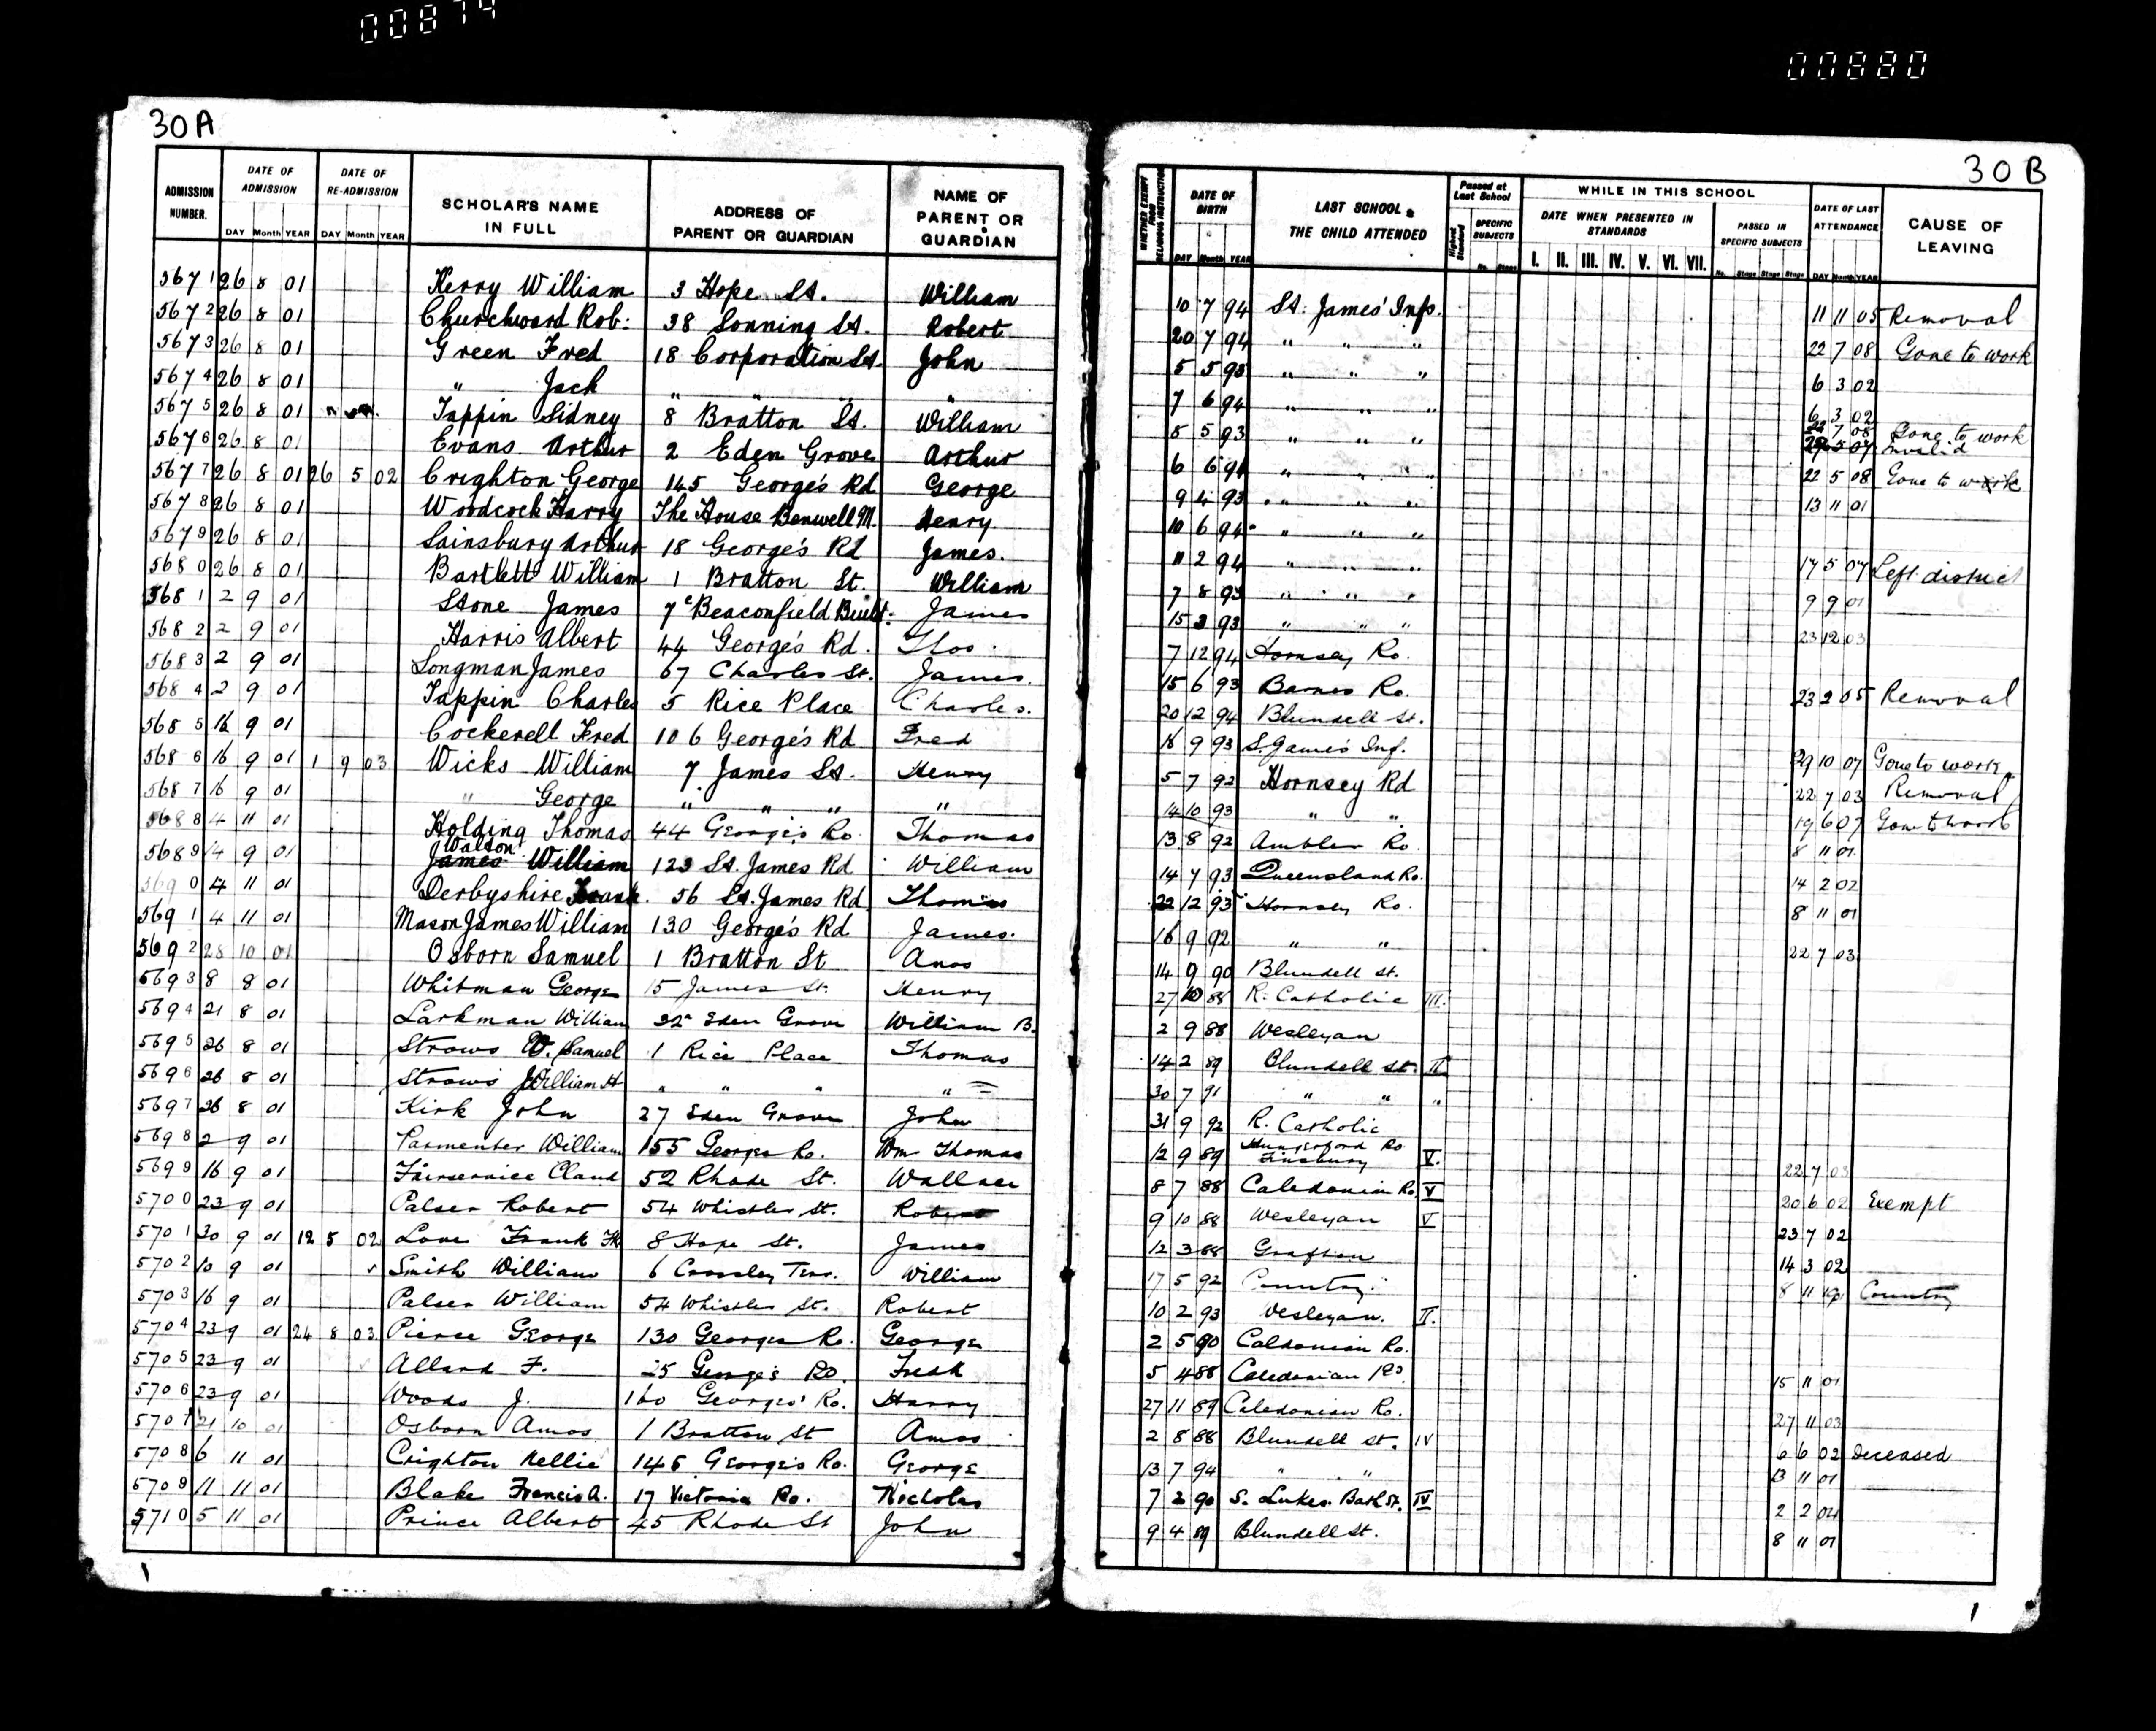 00874
00880
30A
30B
ADMISSION NUMBER.
DATE OF ADMISSION
DATE OF RE-ADMISSION
SCHOLAR'S NAME IN FULL
ADDRESS OF PARENT OR GUARDIAN
NAME OF PARENT OR GUARDIAN
DAY Month YEAR DAY Month YEAR
5671 26 8 01 Kerry William 3 Hope St. William
5672 26 8 01 Churchward Rob: 38 Sonning St. Robert
5673 26 8 01 Green Fred 18 Corporation St. John
5674 26 8 01 " Jack " " " "
5675 26 8 01 Tappin Sidney 8 Bratton St. William
5676 26 8 01 Evans Arthur 2 Eden Grove Arthur
5677 26 8 01 26 5 02 Crighton George 145 George's Rd George
5678 26 8 01 Woodcock Harry The House Benwell M. Henry
5679 26 8 01 Sainsbury Arthur 18 George's Rd James.
5680 26 8 01 Bartlett William 1 Bratton St. William
5681 2 9 01 Stone James 7c Beaconfield Build. James
5682 2 9 01 Harris Albert 44 George's Rd. Thos.
5683 2 9 01 Longman James 67 Charles St. James.
5684 2 9 01 Tappin Charles 5 Rice Place Charles.
5685 16 9 01 Cockerell Fred 106 George's Rd Fred
5686 16 9 01 1 9 03 Wicks William 7 James St. Henry
5687 16 9 01 " George " " " "
5688 4 11 01 Holding Thomas 44 George's Ro. Thomas
5689 14 9 01 James Walton William 123 St. James Rd William
5690 4 11 01 Derbyshire Frank. 56 St. James Rd. Thomas
5691 4 11 01 Mason James William 130 George's Rd James.
5692 28 10 01 Osborn Samuel 1 Bratton St Amos
5693 8 8 01 Whitman George 15 James St. Henry
5694 21 8 01 Larkman William 22a Eden Grove William B.
5695 26 8 01 Straws W. Samuel 1 Rice Place Thomas
5696 26 8 01 Straws William H " " " "
5697 26 8 01 Kirk John 27 Eden Grove John
5698 2 9 01 Parmenter William 155 Georges Ro. Wm Thomas
5699 16 9 01 Fairservice Claud 52 Rhode St. Wallace
5700 23 9 01 Palser Robert 54 Whistler St. Robert
5701 30 9 01 12 5 02 Love Frank 8 Hope St. James
5702 10 9 01 Smith William 6 Crossley Terr. William
5703 16 9 01 Palser William 54 Whistler St. Robert
5704 23 9 01 24 8 03 Pierce George 130 Georges Ro. George
5705 23 9 01 Allard F. 25 George's Ro. Fredk
5706 23 9 01 Woods J. 160 Georges' Ro. Harry
5707 21 10 01 Osborn Amos 1 Bratton St Amos
5708 6 11 01 Crighton Nellie 145 George's Ro. George
5709 11 11 01 Blake Francis A. 17 Victoria Ro. Nicholas
5710 5 11 01 Prince Albert 45 Rhode St John
1
WHETHER EXEMPT FROM RELIGIOUS INSTRUCTION
DATE OF BIRTH
LAST SCHOOL THE CHILD ATTENDED
Passed at Last School
Highest Standard
SPECIFIC SUBJECTS
WHILE IN THIS SCHOOL
DATE WHEN PRESENTED IN STANDARDS
PASSED IN SPECIFIC SUBJECTS
DATE OF LAST ATTENDANCE
CAUSE OF LEAVING
DAY Month YEAR No. Stage I. II. III. IV. V. VI. VII. No. Stage Stage Stage DAY Month YEAR
10 7 94 St. James' Inf. 11 11 05 Removal
20 7 94 " " " 22 7 08 Gone to work
5 5 93 " " " 6 3 02
7 6 94 " " " 6 3 02
8 5 93 " " " 22 7 08 Gone to work
6 6 94 " " " 5 07 Invalid
9 4 93 " " " 22 5 08 Gone to work
10 6 94 " " " 13 11 01
11 2 94 " " "
7 8 93 " " " 17 5 07 Left district
15 3 93 " " " 9 9 01
7 12 94 Hornsey Ro. 23 12 03
15 6 93 Barnes Ro.
20 12 94 Blundell St. 23 2 05 Removal
16 9 93 S. James' Inf.
5 7 92 Hornsey Rd 29 10 07 Gone to work
14 10 93 " " 22 7 03 Removal
13 8 92 Ambler Ro. 19 6 07 Gone to work
14 7 93 Queensland Ro. 8 11 01
22 12 93 Hornsey Ro. 14 2 02
16 9 92 " " 8 11 01
14 9 90 Blundell St. 22 7 03
27 10 88 R. Catholic III.
2 9 88 Wesleyan
14 2 89 Blundell St. II
30 7 91 " " "
31 9 92 R. Catholic
12 9 89 Hungerford Ro Finsbury V.
8 7 88 Caledonian Ro. V 22 7 03
9 10 88 Wesleyan V 20 6 02 Exempt
12 3 88 Grafton 23 7 02
17 5 92 Country. 14 3 02
10 2 93 Wesleyan. II. 8 11 Country
2 5 90 Caldonian Ro.
5 4 88 Caledonian Rd.
27 11 89 Caledonian Ro. 15 11 01
2 8 88 Blundell St. IV 27 11 03
13 7 94 " " 6 6 02 Deceased
7 2 90 S. Lukes. Bath St. IV 13 11 01
9 4 89 Blundell St. 2 2 04
8 11 01
1